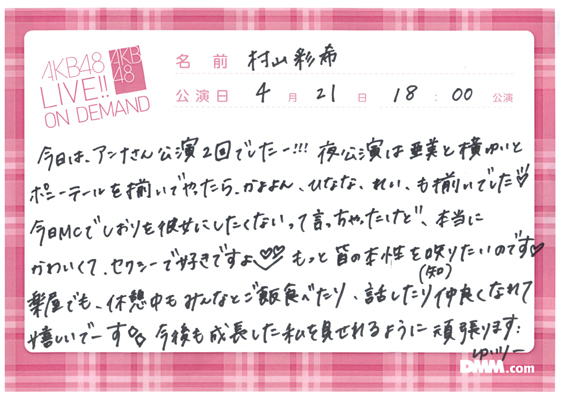 AKB48
LIVE!!
ON DEMAND
AKB
48
名前 村山彩希
公演日 4月21日 18:00公演
今日は、アンナさん公演2回でしたー!!! 夜公演は亜美と横ゆいと
ポニーテールを揃いでやったら、かよよん、ひなな、れい、も揃いでした♡
今日MCでしおりを彼女にしたくないって言っちゃったけど、本当に
かわいくて、セクシーで好きですよ♡♡ もっと皆の本性を映りたいのです♡
(知)
楽屋でも、休憩中もみんなとご飯食べたり、話したり仲良くなれて
嬉しいでーす 今後も成長した私を見せれるように頑張ります:
ゆいりー
DMM.com